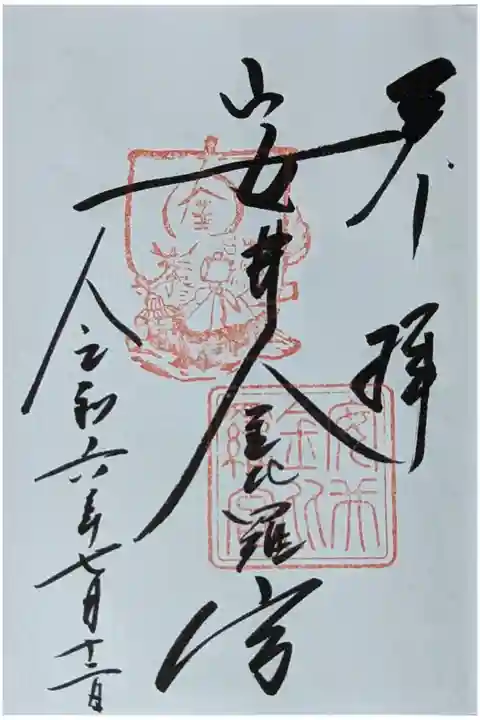 奉拝
安井金比羅宮
令和六年七月十二日
安井
金比
羅宮